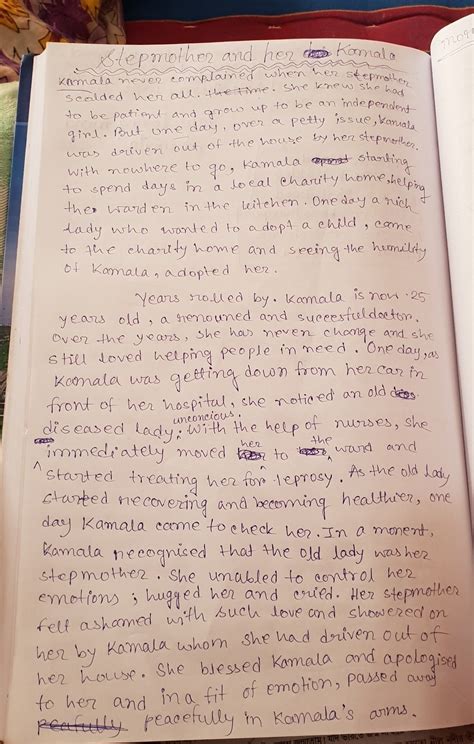 Stepmother and her Kamala
Kamala never complained when her stepmother
scolded her all. the time. She knew she had
to be patient and grow up to be an independent
girl. But one day, over a petty issue, Kamala
was driven out of the house by her stepmother.
With nowhere to go, Kamala starting
to spend days in a local charity home, helping
the warden in the kitchen. One day a rich
lady who wanted to adopt a child, came
to the charity home and seeing the humility
of Kamala, adopted her.
Years rolled by. Kamala is now 25
years old, a renouned and succesful doctor.
Over the years, she has never change and she
still loved helping people in need. One day, as
Kamala was getting down from her car in
front of her hospital, she noticed an old
unconcious.
diseased lady, With the help of nurses, she
immediately moved her to the ward and
started treating her for leprosy. As the old lady
started recovering and becoming healthier, one
day Kamala came to check her. In a moment,
Kamala recognised that the old lady was her
stepmother. She unabled to control her
emotions; hugged her and cried. Her stepmother
felt ashamed with such love and showered on
her by Kamala whom she had driven out of
her house. She blessed Kamala and apologised
to her and in a fit of emotion, passed away
peafully peacefully in Kamala's arms.